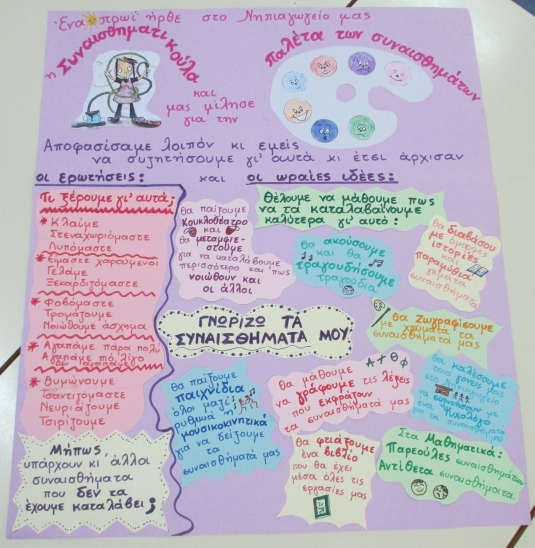 Ένα πρωί ήρθε στο Νηπιαγωγείο μας
η Συναισθηματικούλα
και
μας μίλησε
για την
παλέτα των συναισθημάτων
Αποφασίσαμε λοιπόν κι εμείς
να συζητήσουμε γι' αυτά κι έτσι άρχισαν
οι ερωτήσεις: και οι ωραίες ιδέες:
Τι ξέρουμε γι' αυτά;
* Κλαίμε
Στεναχωριόμαστε
Λυπόμαστε
* Είμαστε χαρούμενοι
Γελάμε
Ξεκαρδιζόμαστε
* Φοβόμαστε
Τρομάζουμε
Νοιώθουμε άσχημα
* Αγαπάμε πάρα πολύ
Αγαπάμε πιο λίγο
* Θυμώνουμε
Τσαντιζόμαστε
Νευριάζουμε
Τσιρίζουμε
Μήπως
υπάρχουν κι άλλα
συναισθήματα
που δεν τα
έχουμε καταλάβει;
θα παίξουμε
Κουκλοθέατρο
και
θα μεταμφιεστούμε
για να καταλάβουμε
περισσότερο και πως
νοιώθουν και
οι άλλοι
Θέλουμε να μάθουμε πως
να τα καταλαβαίνουμε
καλύτερα γι' αυτό:
θα ακούσουμε
και θα
τραγουδήσουμε
τραγούδια
θα διαβάσουμε
όμορφες
ιστορίες
και
παραμύθια
γεμάτα
συναισθήματα
ΓΝΩΡΙΖΩ ΤΑ
ΣΥΝΑΙΣΘΗΜΑΤΑ ΜΟΥ
θα ζωγραφίσουμε
με χρώματα τα
συναισθήματά μας
θα παίξουμε
παιχνίδια
όλοι μαζί
ρυθμικά ή
μουσικοκινητικά
για να δείξουμε
τα
συναισθήματά μας
Α + Θ φ
θα μάθουμε
να γράφουμε τις λέξεις
που εκφράζουν
τα συναισθήματά μας
θα καλέσουμε
τους γονείς μας
στο Νηπιαγωγείο
να συζητήσουν με
ένα ψυχολόγο
για τα συναισθήματα
θα φτιάξουμε
ένα βιβλίο
που θα έχει
μέσα όλες τις
εργασίες μας
Στα Μαθηματικά:
Παρεούλες συναισθημάτων
Αντίθετα συναισθήματα